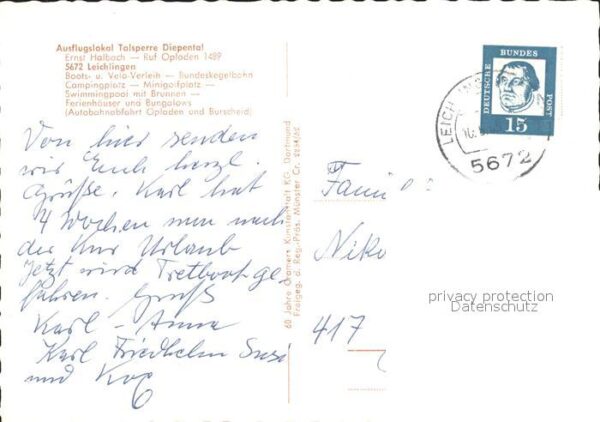 Ausflugslokal Talsperre Diepental
Ernst Halbach — Ruf Opladen 1489
5672 Leichlingen
Boots- u. Velo-Verleih — Bundeskegelbahn
Campingplatz — Minigolfplatz —
Swimmingpool mit Brunnen —
Ferienhäuser und Bungalows
(Autobahnabfahrt Opladen und Burscheid)
Von hier senden
wir Euch herzl.
Grüße. Karl hat
4 Wochen nun nach
der Kur Urlaub
Jetzt wird Tretboot ge
fahren. Gruß
Karl - Anna
Karl Friedhelm Susi
und
60 Jahre Cramers Kunstanstalt KG, Dortmund
Freigeg. d. Reg.-Präs. Münster Cr.
DEUTSCHE
BUNDES
POST
15
LEICH
5672
Fami
Niko
417
privacy protection
Datenschutz